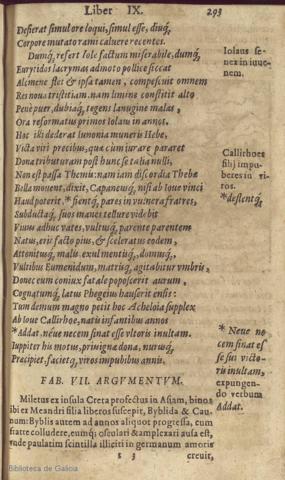 Liber IX. 293
Desierat simul ore loqui, simul esse, diuq́,
Corpore mutato rami caluere recentes.
Dumq́, refert Iole factum miserabile, dumq́,
Eurytidos lacrymas admoto pollice siccat
Alcmene, flet & ipsa tamen, compescuit omnem
Res noua tristitiam. nam limine constitit alto
Penè puer, dubiaq́, tegens lanugine malas,
Ora reformatus primos Iolaus in annos.
Hoc illi dederat Iunonia muneris Hebe,
Victa viri precibus, quæ cùm iurare pararet
Dona tributuram post hunc se talia nulli,
Non est passa Themis: nam iam discordia Thebæ
Bella mouent, dixit, Capaneusq́, nisi ab Ioue vinci
Haud poterit. * fientq́, pares in vulnera fratres,
Subductaq́, suos manes tellure videbit
Viuus adhuc vates, vltusq́, parente parentem
Natus, erit facto pius, & sceleratus eodem,
Attonitusq́, malis exul mentisq́,, domusq́,
Vultibus Eumenidum, matrisq́, agitabitur vmbris,
Donec eum coniux fatale poposcerit aurum,
Cognatumq́, latus Phegeius hauserit ensis:
Tum demum magno petit hoc Acheloia supplex
Ab Ioue Callirhoe, natis infantibus annos
* Addat. néue necem sinat esse vltoris inultam.
Iuppiter his motus, priuignæ dona, nurusq́,
Præcipiet, facietq́, viros impubibus annis.
Iolaus se-
nex in iuue-
nem.
Callirhoës
filij impu-
beres in vi-
ros.
*deslentq́,
* Neue ne
cem sinat es
se sui victo-
ris inultam,
expungen-
do verbum
Addat.
FAB. VII. ARGVMENTVM.
Miletus ex insula Creta profectus in Asiam, binos
ibi ex Meandri filia liberos suscepit, Byblida & Cau-
num: Byblis autem ad annos aliquot progressa, cum
fratre colludere, eumq́; osculari & amplexari ausa est,
vnde paulatim scintilla illiciti in germanum amoris
s 3 creuit,
Biblioteca de Galicia